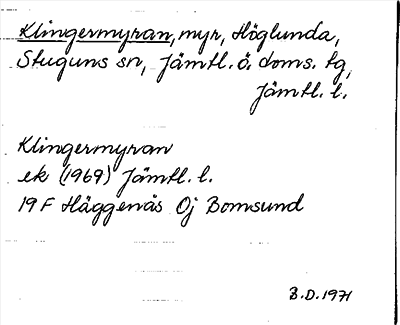 Klingermyran, myr, Höglunda,
Stuguns sn, Jämtl. ö. doms. tg,
Jämtl. l.
Klingermyran
ek (1969) Jämtl. l.
19 F Häggenås Oj Bomsund
B.D. 1971